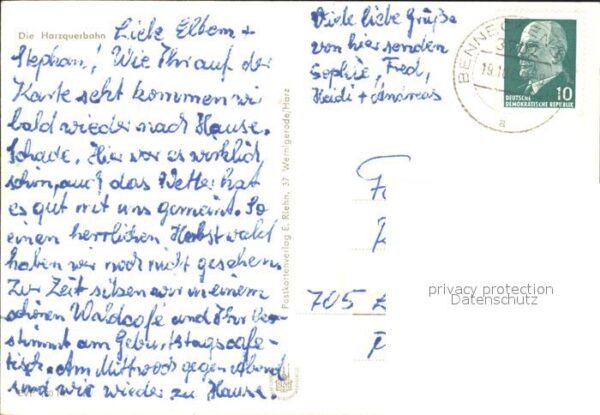 Die Harzquerbahn
Liebe Eltern +
Stephan! Wie Ihr auf der
Karte seht kommen wir
bald wieder nach Hause.
Schade. Hier war es wirklich
schön, auch das Wetter hat
es gut mit uns gemeint. So
einen herrlichen Herbstwald
haben wir noch nicht gesehen.
Zur Zeit sitzen wir in einem
schönen Waldcafé und Ihr be-
stimmt am Geburtstagscafe-
tisch. Am Mittwoch gegen Abend
sind wir wieder zu Hause.
Postkartenverlag E. Riehn, 37 Wernigerode/Harz
Viele liebe Grüße
von hier senden
Sophie, Fred,
Heidi + Andreas
BENNECKEN
19.10
a
10
DEUTSCHE
DEMOKRATISCHE REPUBLIK
705
privacy protection
Datenschutz